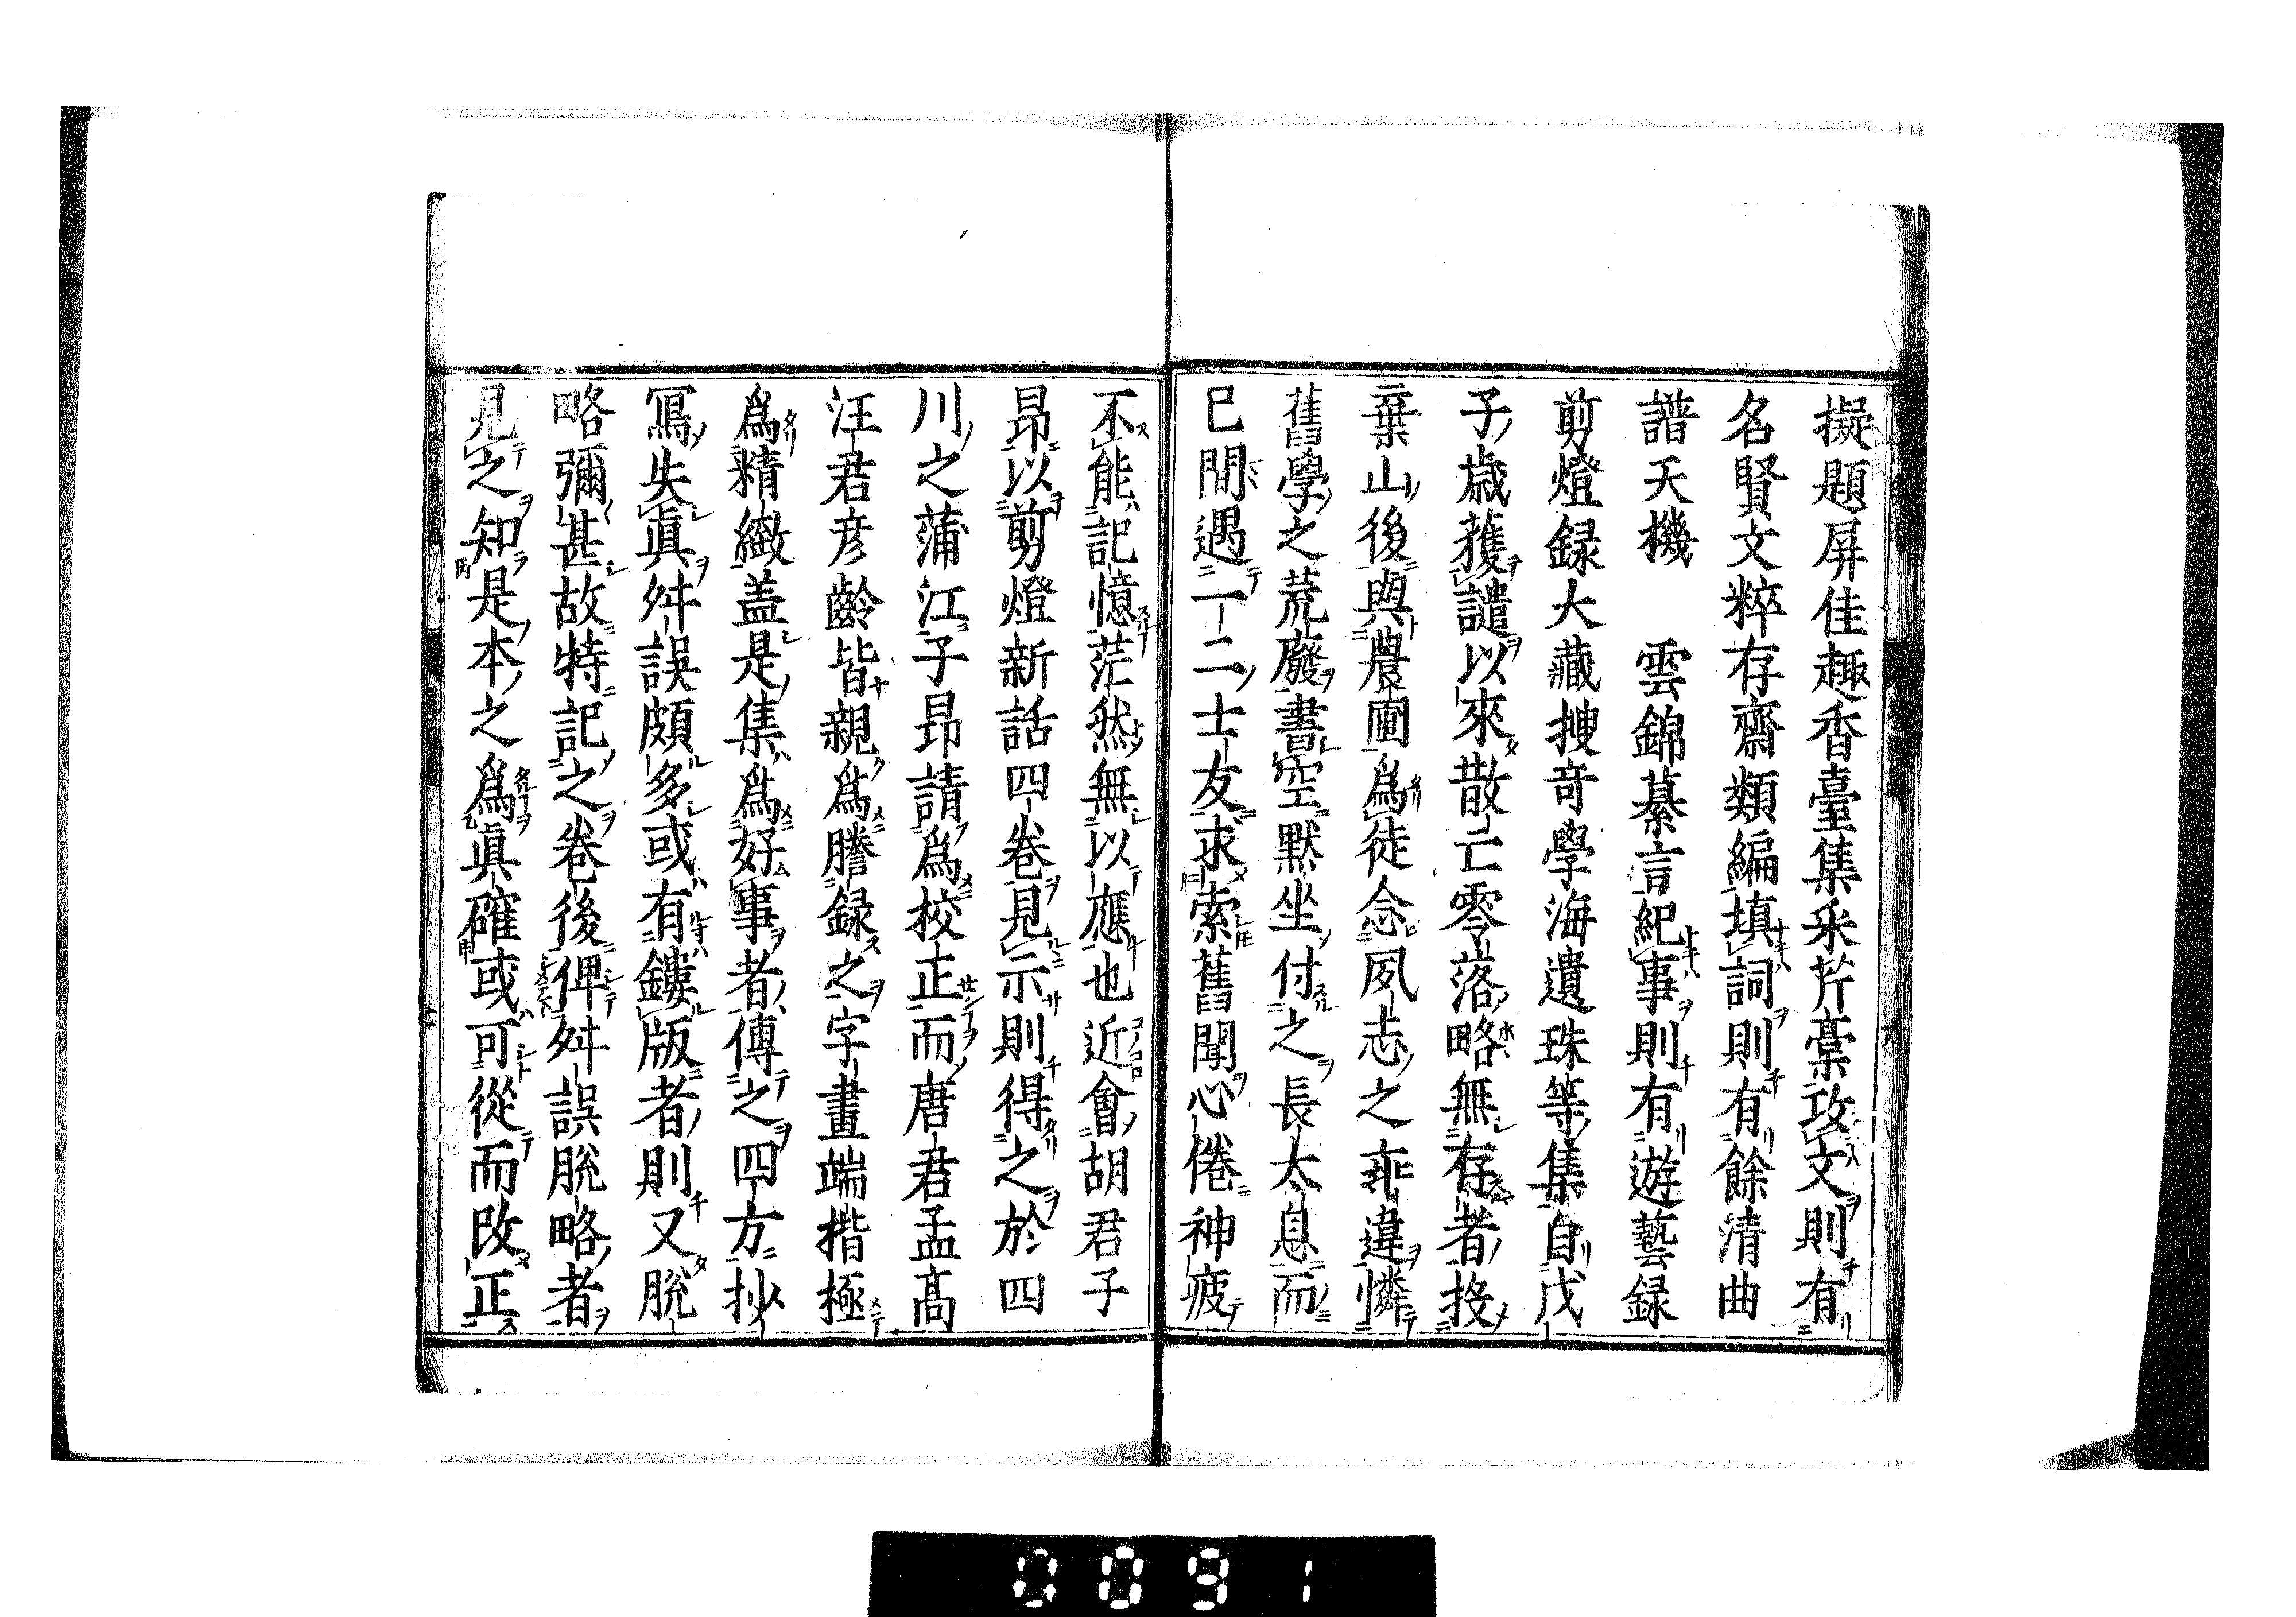 擬題屏佳趣香臺集采芹藁攻文則有
名賢文粹存齋類編塡詞則有餘清曲
譜天機　雲錦綦言紀事則有遊藝録
剪燈録大藏搜竒學海遺珠等集自戊
子歳獲譴以來散亡零落略無存者投
棄山後與農圃爲徒念夙志之乖違憐
舊學之荒廢書空默坐付之長太息而
已間遇一二士友求索舊聞心倦神疲
不能記憶茫然無以應也近會胡君子
昂以剪燈新話四巻見示則得之於四
川之蒲江子昂請爲校正而唐君孟髙
汪君彦齡皆親爲謄録之字畫端楷極
爲精緻盖是集爲好事者傳之四方抄
冩失眞舛誤頗多或有鏤版者則又脱
略彌甚故特記之巻後俾舛誤脱略者
見之知是本之爲眞確或可從而改正
0091